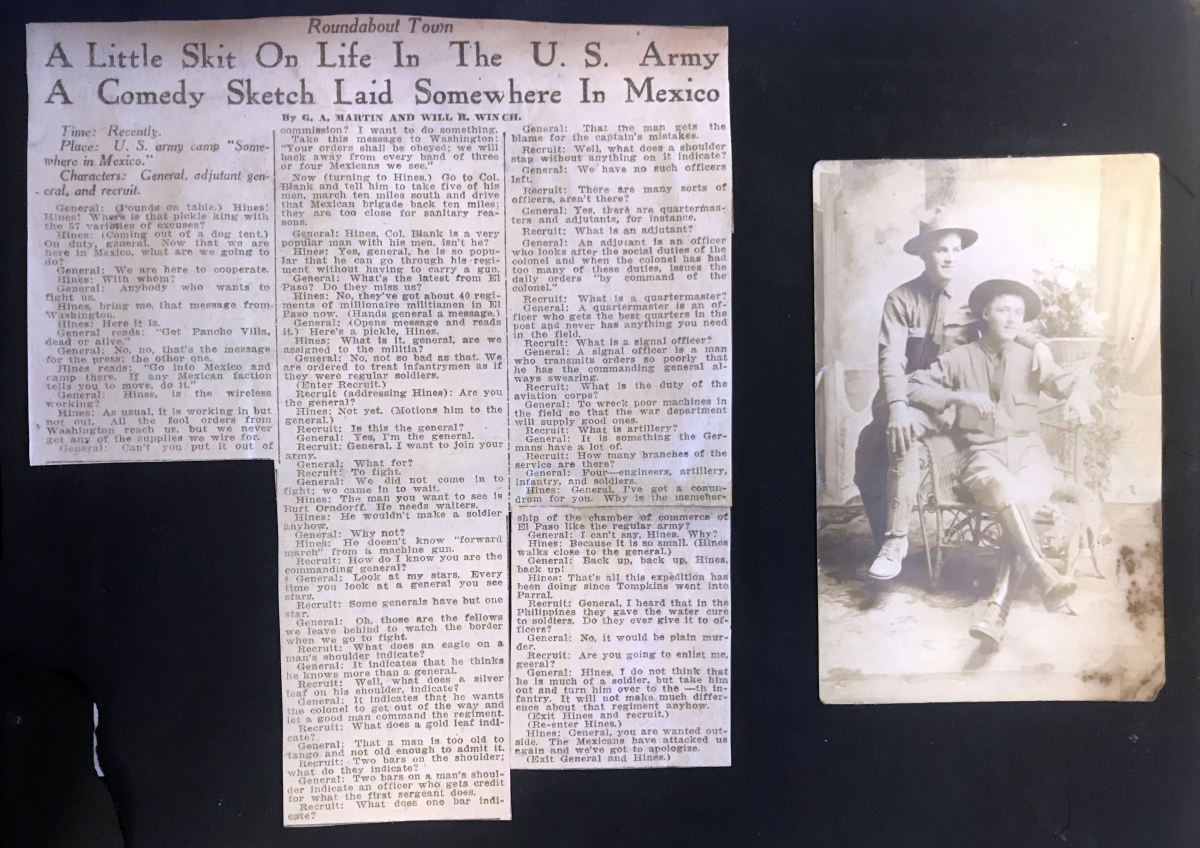 Roundabout Town
A Little Skit On Life In The U. S. Army
A Comedy Sketch Laid Somewhere In Mexico
By G. A. MARTIN AND WILL R. WINCH.
Time: Recently.
Place: U. S. army camp "Some-
where in Mexico."
Characters: General, adjutant gen-
eral, and recruit.
General: (Pounds on table.) Hines!
Hines! Where is that pickle king with
the 57 varieties of excuses?
Hines: (Coming out of a dog tent.)
On duty, general. Now that we are
here in Mexico, what are we going to
do?
General: We are here to cooperate.
Hines: With whom?
General: Anybody who wants to
fight us.
Hines, bring me that message from
Washington.
Hines: Here it is.
General reads: "Get Pancho Villa,
dead or alive."
General: No, no, that's the message
for the press; the other one.
Hines reads: "Go into Mexico and
camp there. If any Mexican faction
tells you to move, do it."
General: Hines, is the wireless
working?
Hines: As usual, it is working in but
not out. All the fool orders from
Washington reach us, but we never
get any of the supplies we wire for.
General: Can't you put it out of
commission? I want to do something.
Take this message to Washington:
"Your orders shall be obeyed; we will
back away from every band of three
or four Mexicans we see."
Now (turning to Hines.) Go to Col.
Blank and tell him to take five of his
men, march ten miles south and drive
that Mexican brigade back ten miles;
they are too close for sanitary rea-
sons.
General: Hines, Col. Blank is a very
popular man with his men, isn't he?
Hines: Yes, general, he is so popu-
lar that he can go through his regi-
ment without having to carry a gun.
General: What's the latest from El
Paso? Do they miss us?
Hines: No, they've got about 40 regi-
ments of millionaire militiamen in El
Paso now. (Hands general a message.)
General: (Opens message and reads
it.) Here's a pickle, Hines.
Hines: What is it, general, are we
assigned to the militia?
General: No, not so bad as that. We
are ordered to treat infantrymen as if
they were regular soldiers.
(Enter Recruit.)
Recruit (addressing Hines): Are you
the general?
Hines: Not yet. (Motions him to the
general.)
Recruit: Is this the general?
General: Yes, I'm the general.
Recruit: General, I want to join your
army.
General: What for?
Recruit: To fight.
General: We did not come in to
fight; we came in to wait.
Hines: The man you want to see is
Burt Orndorff. He needs waiters.
Hines: He wouldn't make a soldier
anyhow.
General: Why not?
Hines: He doesn't know "forward
march" from a machine gun.
Recruit: How do I know you are the
commanding general?
General: Look at my stars. Every
time you look at a general you see
stars.
Recruit: Some generals have but one
star.
General: Oh, those are the fellows
we leave behind to watch the border
when we go to fight.
Recruit: What does an eagle on a
man's shoulder indicate?
General: It indicates that he thinks
he knows more than a general.
Recruit: Well, what does a silver
leaf on his shoulder, indicate?
General: It indicates that he wants
the colonel to get out of the way and
let a good man command the regiment.
Recruit: What does a gold leaf indi-
cate?
General: That a man is too old to
tango and not old enough to admit it.
Recruit: Two bars on the shoulder;
what do they indicate?
General: Two bars on a man's shoul-
der indicate an officer who gets credit
for what the first sergeant does.
Recruit: What does one bar indi-
cate?
General: That the man gets the
blame for the captain's mistakes.
Recruit: Well, what does a shoulder
stap without anything on it indicate?
General: We have no such officers
left.
Recruit: There are many sorts of
officers, aren't there?
General: Yes, there are quartermas-
ters and adjutants, for instance.
Recruit: What is an adjutant?
General: An adjutant is an officer
who looks after the social duties of the
colonel and when the colonel has had
too many of these duties, issues the
daily orders "by command of the
colonel."
Recruit: What is a quartermaster?
General: A quartermaster is an of-
ficer who gets the best quarters in the
post and never has anything you need
in the field.
Recruit: What is a signal officer?
General: A signal officer is a man
who transmits orders so poorly that
he has the commanding general al-
ways swearing.
Recruit: What is the duty of the
aviation corps?
General: To wreck poor machines in
the field so that the war department
will supply good ones.
Recruit: What is artillery?
General: It is something the Ger-
mans have a lot of.
Recruit: How many branches of the
service are there?
General: Four—engineers, artillery,
infantry, and soldiers.
Hines: General, I've got a conun-
drum for you. Why is the memeber-
ship of the chamber of commerce of
El Paso like the regular army?
General: I can't say, Hines. Why?
Hines: Because it is so small. (Hines
walks close to the general.)
General: Back up, back up, Hines,
back up!
Hines: That's all this expedition has
been doing since Tompkins went into
Parral.
Recruit: General, I heard that in the
Philippines they gave the water cure
to soldiers. Do they ever give it to of-
ficers?
General: No, it would be plain mur-
der.
Recruit: Are you going to enlist me,
geeral?
General: Hines, I do not think that
he is much of a soldier, but take him
out and turn him over to the —th in-
fantry. It will not make much differ-
ence about that regiment anyhow.
(Exit Hines and recruit.)
(Re-enter Hines.)
Hines: General, you are wanted out-
side. The Mexicans have attacked us
again and we've got to apologize.
(Exit General and Hines.)